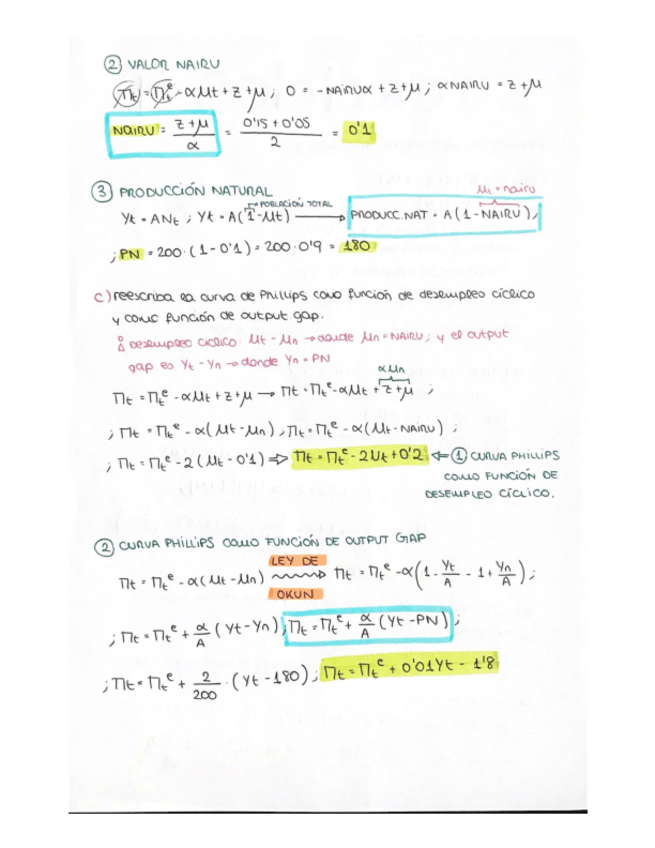 ② VALOR NAIRU
Πt = Πtᵉ - αμt + z + μ ; 0 = -NAIRUα + z + μ ; αNAIRU = z + μ
NAIRU = (z + μ)/α = (0'15 + 0'05)/2 = 0'1
③ PRODUCCIÓN NATURAL
μt = nairu
POBLACIÓN TOTAL
Yt = ANt ; Yt = A(1 - μt) → PRODUCC. NAT = A(1 - NAIRU) ;
; PN = 200 · (1 - 0'1) = 200 · 0'9 = 180
c) reescriba la curva de Phillips como función de desempleo cíclico
y como función de output gap.
DESEMPLEO CÍCLICO: μt - μn → donde μn = NAIRU ; y el output
gap es Yt - Yn → donde Yn = PN
αμn
Πt = Πtᵉ - αμt + z + μ → Πt = Πtᵉ - αμt + z + μ ;
; Πt = Πtᵉ - α(μt - μn) ; Πt = Πtᵉ - α(μt - NAIRU) ;
; Πt = Πtᵉ - 2(μt - 0'1) ⇒ Πt = Πtᵉ - 2Ut + 0'2 ⇐ ① CURVA PHILLIPS
COMO FUNCIÓN DE
DESEMPLEO CÍCLICO.
② CURVA PHILLIPS COMO FUNCIÓN DE OUTPUT GAP
LEY DE
Πt = Πtᵉ - α(μt - μn) → Πt = Πtᵉ - α(1 - Yt/A - 1 + Yn/A) ;
OKUN
; Πt = Πtᵉ + α/A (Yt - Yn) ; Πt = Πtᵉ + α/A (Yt - PN) ;
; Πt = Πtᵉ + 2/200 · (Yt - 180) ; Πt = Πtᵉ + 0'01Yt - 1'8